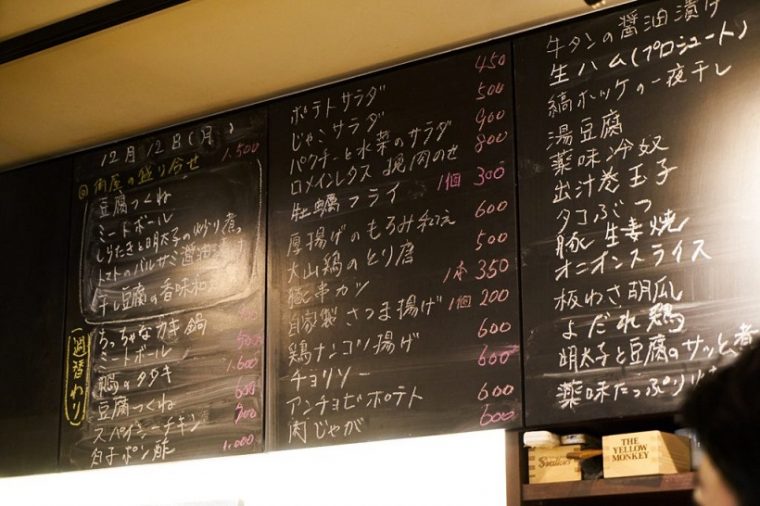 12月12日(月)
角屋の盛り合せ 1.500
豆腐つくね
ミートボール
しらたきと明太子の炒り煮
トマトのバルサミ醤油漬け
干し豆腐の香味和え
一週替わり
ちっちゃなカキ鍋
ミートボール
鴨のタタキ 1.600
豆腐つくね 600
スパイシーチキン
白子ポン酢 1.000
ポテトサラダ 450
じゃこサラダ 500
パクチーと水菜のサラダ 900
ロメインレタス 挽肉のせ 800
牡蠣フライ 1個 300
厚揚げのもろみ和え 600
大山鶏のとり唐 500
豚串カツ 1本 350
自家製さつま揚げ 1個 200
鶏ナンコツ揚げ 600
チョリソー 600
アンチョビポテト 600
肉じゃが 600
牛タンの醤油漬け
生ハム(プロシュート)
縞ホッケの一夜干し
湯豆腐
薬味冷奴
出汁巻玉子
タコぶつ
豚生姜焼
オニオンスライス
板わさ胡瓜
よだれ鶏
明太子と豆腐のサッと煮
薬味たっぷり
Swallows
THE
YELLOW
MONKEY